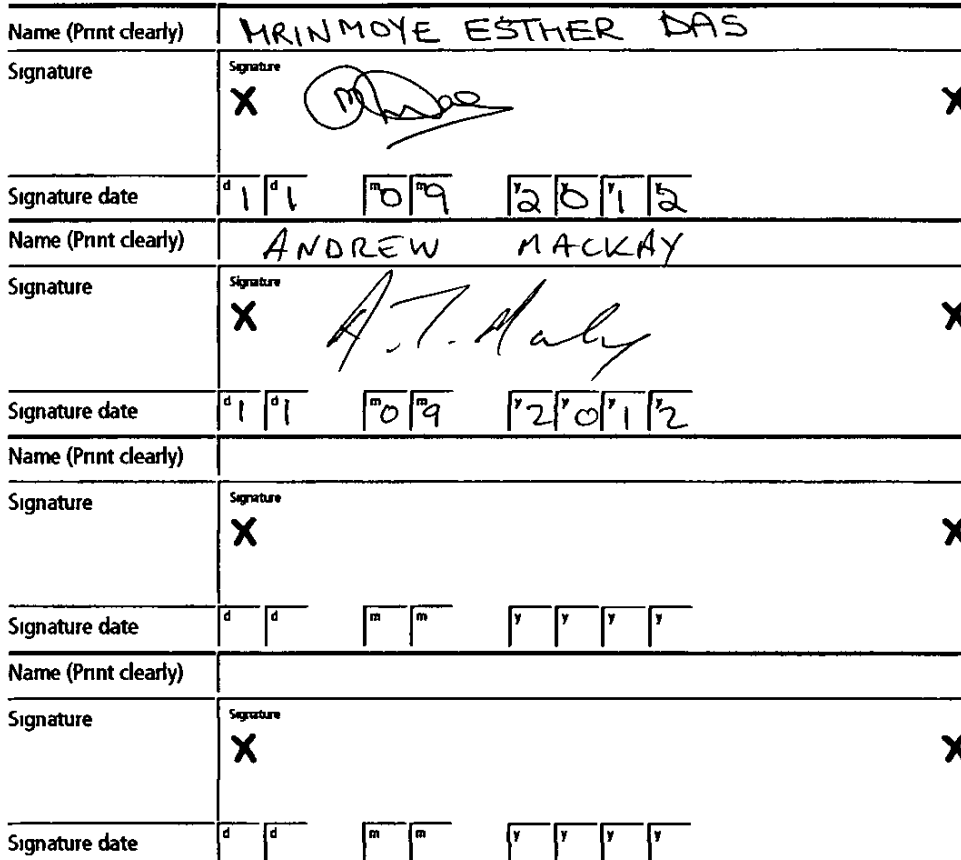 Name (Print clearly) MRINMOYE ESTHER DAS
Signature Signature
X X
Signature date d 1 d 1 m 0 m 9 y 2 y 0 y 1 y 2
Name (Print clearly) ANDREW MACKAY
Signature Signature
X A.T. X
Signature date d 1 d 1 m 0 m 9 y 2 y 0 y 1 y 2
Name (Print clearly)
Signature Signature
X X
Signature date d d m m y y y y
Name (Print clearly)
Signature Signature
X X
Signature date d d m m y y y y